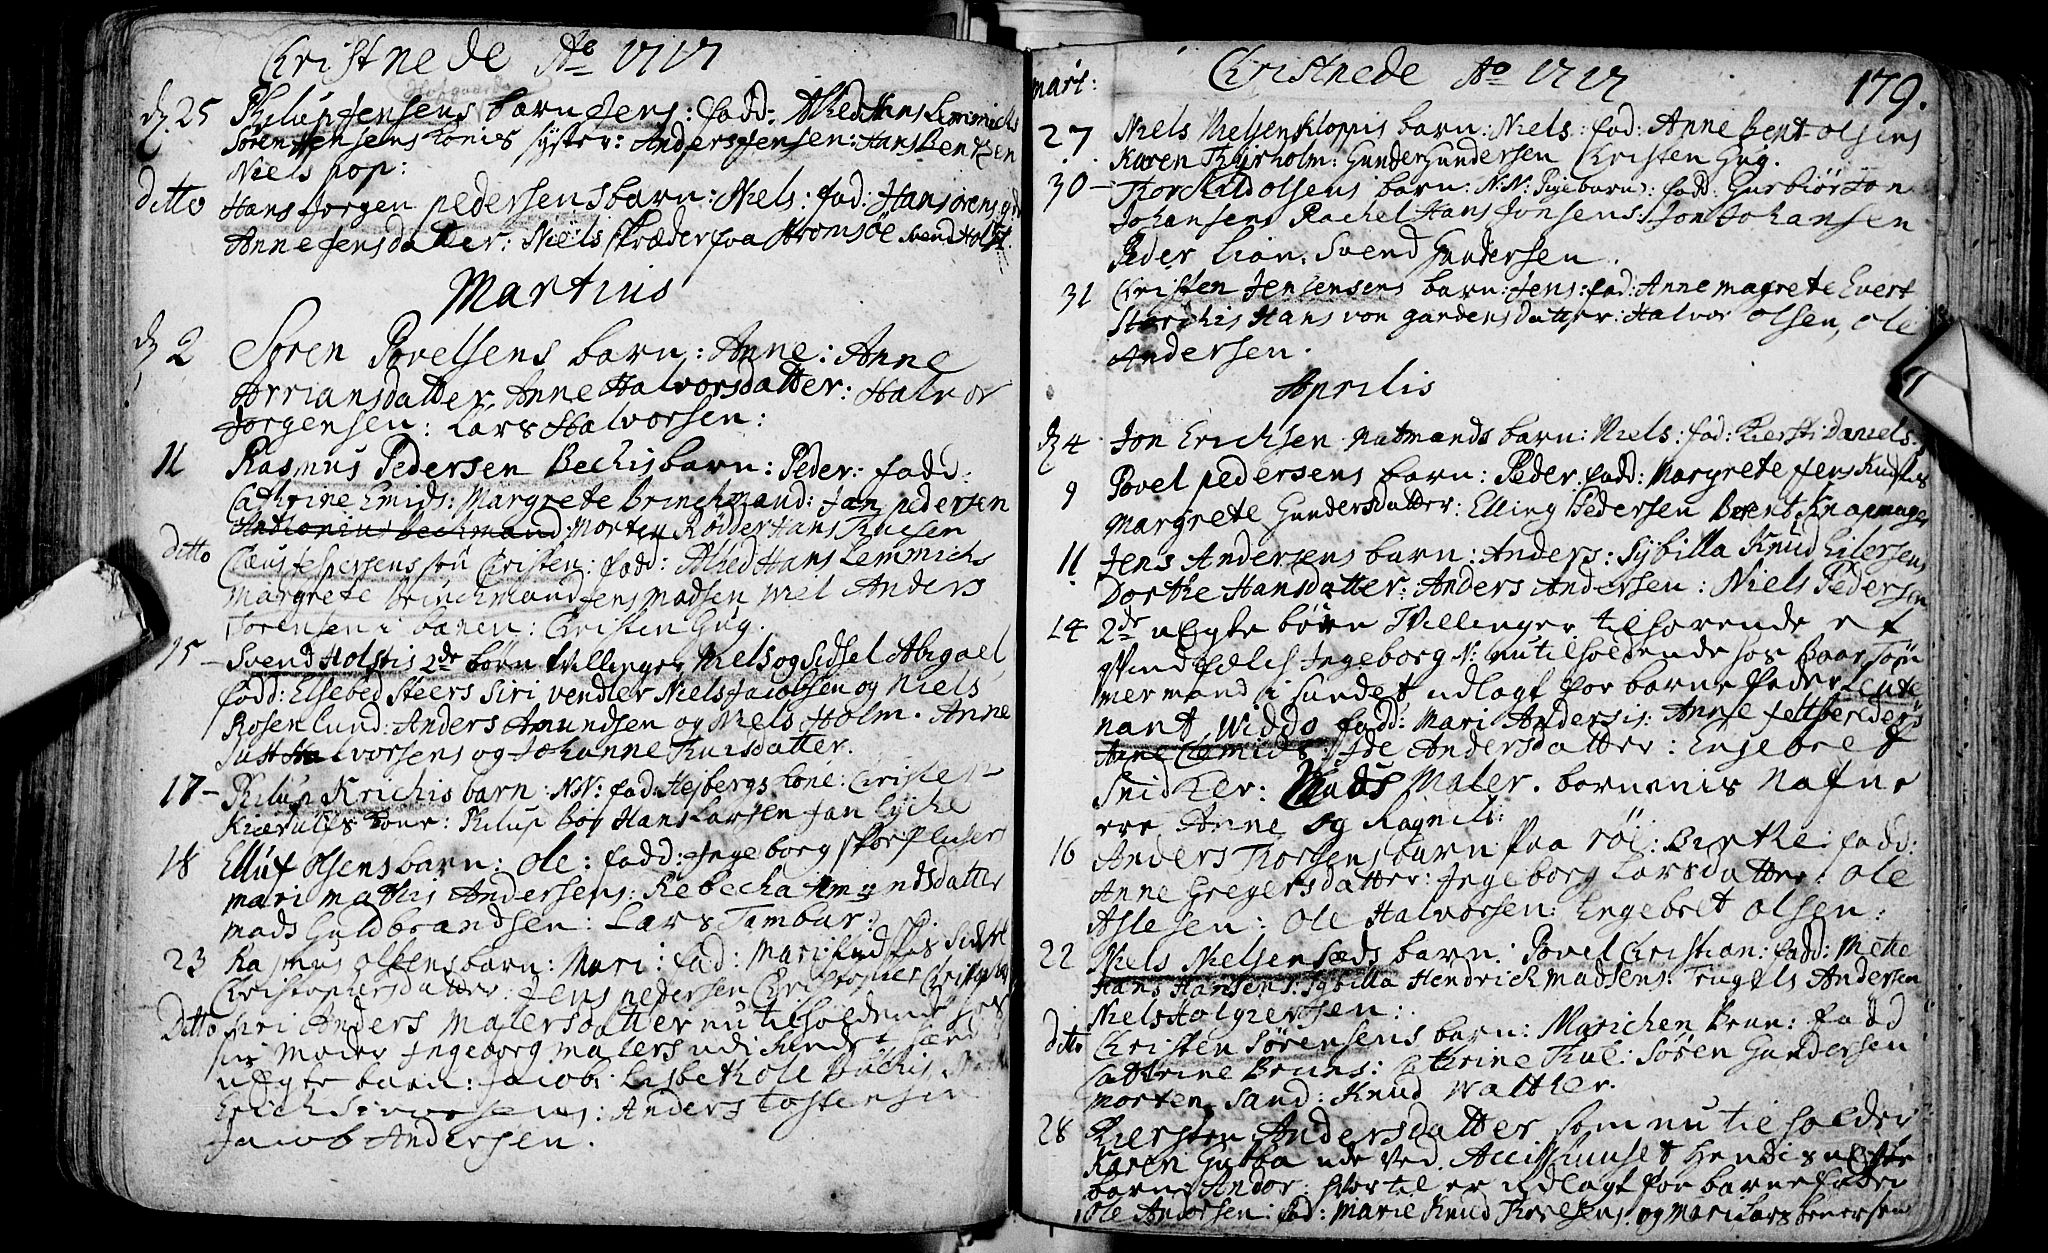 Christnede Ao 1717
d. 25 Philup Jensens barn Jens: fadd: Alhed Hans Lemmichs
Sören Jensens Konis syster: Anders Jensen: Hans Bentzen
Niels pop:
Ditto Hans Jorgen pedersens barn: Niels: fad: Hans
Anne Jensdatter: Niels skræder fra Stromsöe Svend Holst.
Martius
d. 2 Sören Povelsens barn: Anne: Anne
Arriansdatter, Anne Halvorsdatter: Halvor
Jorgensen: Lars Halvorsen:
11 Rasmus Pedersen Bechis barn: Peder: fadd:
Cathrine Emids: Margrete Brinchmand: Jan pedersen
Morten Rödder Hans
Ditto Claus Jespersens sön Christen: fadd: Alhed Hans Lemmichs
Margrete Brinchmand Jens Madsen Anders
Sörensen i banen: Christen Gug.
15 - Svend Holstis 2de börn tvillinger Niels og Sidsel Abigael
fadd: Ellsebed Steers Siri vendler Niels Jacobsen og Niels
Rosenlund: Anders Amundsen og Niels Holm. Anne
Halvorsens og Johanne
17 - Philup Krichis barn: NN: fad: Hesbergs Kone: Christen
Kierulfs Kone: Philup boy Hans Larsen Jan Lyche
18 Elluf Olsens barn: Ole: fadd: Ingeborg
mari mathis Andersens: Rebecha Amundsdatter
mads Guldbrandsen: Lars Tambur:
23 Rasmus Olsens barn: Mari: fad: Mari Sidsel
Christophersdatter: Jens pedersen Christopher
Ditto Siri Anders Malersdatter nu tilholdende hos
sin Moder Ingeborg Malers udi Sundet
uEgte barn: Jacob: Lisbeth Ole Buchis,
Erich Simensens: Anders Tostensen
Jacob Andersen.
Mart: Christnede Ao 1717 179.
27 Niels Nielsen Kloppis barn: Niels: fad: Anne Bent olsens
Karen Thyrholm: Gunder Gundersen Christen Gug.
30 - Thorkild olsens barn: N:N: Pigebarn: fadd: Gurbiör Jon
Johansens Rachel Hans Jonsens: Jon Johansen
Peder Lian: Svend Gundersen.
31 Christen Jensens barn: Jens: fad: Anne magrete Evert
Hans von gardens datter: Halvor Olsen, Ole
Andersen.
Aprilis
d. 4 Jon Erichsen Natmands barn: Niels: fad: Kiersti Daniels
9 Povel pedersens barn: Peder: fadd: Margrete Jens
Margrete Gundersdatter: Elling Pedersen Bent Knapmager
11 Jens Andersens barn: Anders: Sybilla Knud Eilersens
Dorthe Hansdatter: Anders Andersen: Niels Pedersen
14 2de uEgte börn Tvillinger tilhorende et
qvindfolch Ingeborg N: nu tilholdende hos Baar Töm
mermand i Sundet udlagt for barne fader Leute
nant Widdo fadd: Mari Andersis: Anne
Ide Andersdatter: Engebret
Snidker: Mads Maler. bornenis Nafne
ere Anne og Ragnil:
16 Anders Thorsens barn paa röi: Birthe: fadd:
Anne Gregersdatter: Ingeborg Larsdatter: Ole
Aslesen: Ole Halvorsen: Engebret Olsen:
22 Niels Nielsen barn: Povel Christian: fadd: Mette
Hans Hansens: Sybilla Hendrich Madsens: Trugels Andersen
Niels Holgersen:
ditto Christen Sörensens barn: Marichen Brun: fadd
Cathrine Bruns: Cathrine Thue: Sören Gundersen
Morten Sand: Knud Walther.
28 Kiersten Andersdatter som nu tilholder
Karen Gubba ude ved Hendis uEgte
barn: Andor: hvor til er udlagt for barnefader
Ole Andersen: fad: Marie Knud og Mari Lars